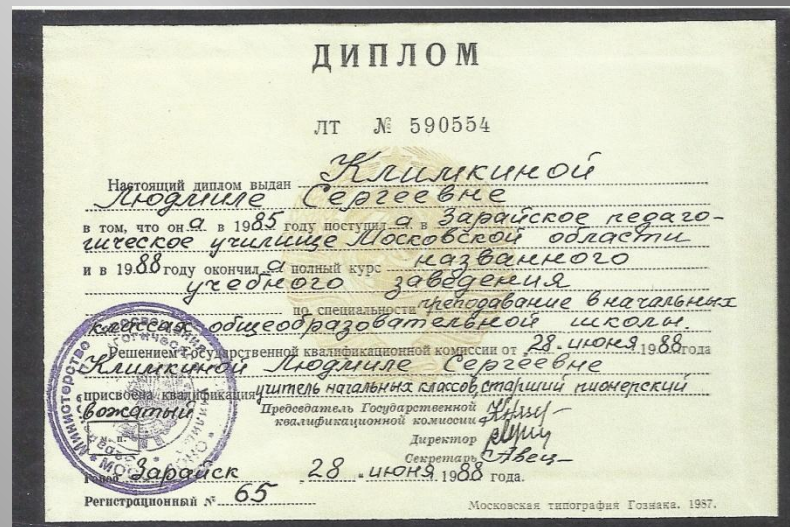 ДИПЛОМ
ЛТ № 590554
Настоящий диплом выдан Климкиной
Людмиле Сергеевне
в том, что она в 1985 году поступила в Зарайское педаго-
гическое училище Московской области
и в 1988 году окончила полный курс названного
учебного заведения
по специальности преподавание в начальных
классах общеобразовательной школы.
Решением Государственной квалификационной комиссии от 28 июня 1988 года
Климкиной Людмиле Сергеевне
присвоена квалификация учитель начальных классов, старший пионерский
вожатый
Председатель Государственной
квалификационной комиссии
Директор
Секретарь
Город Зарайск 28 июня 1988 года.
Регистрационный № 65
Московская типография Гознака. 1987.